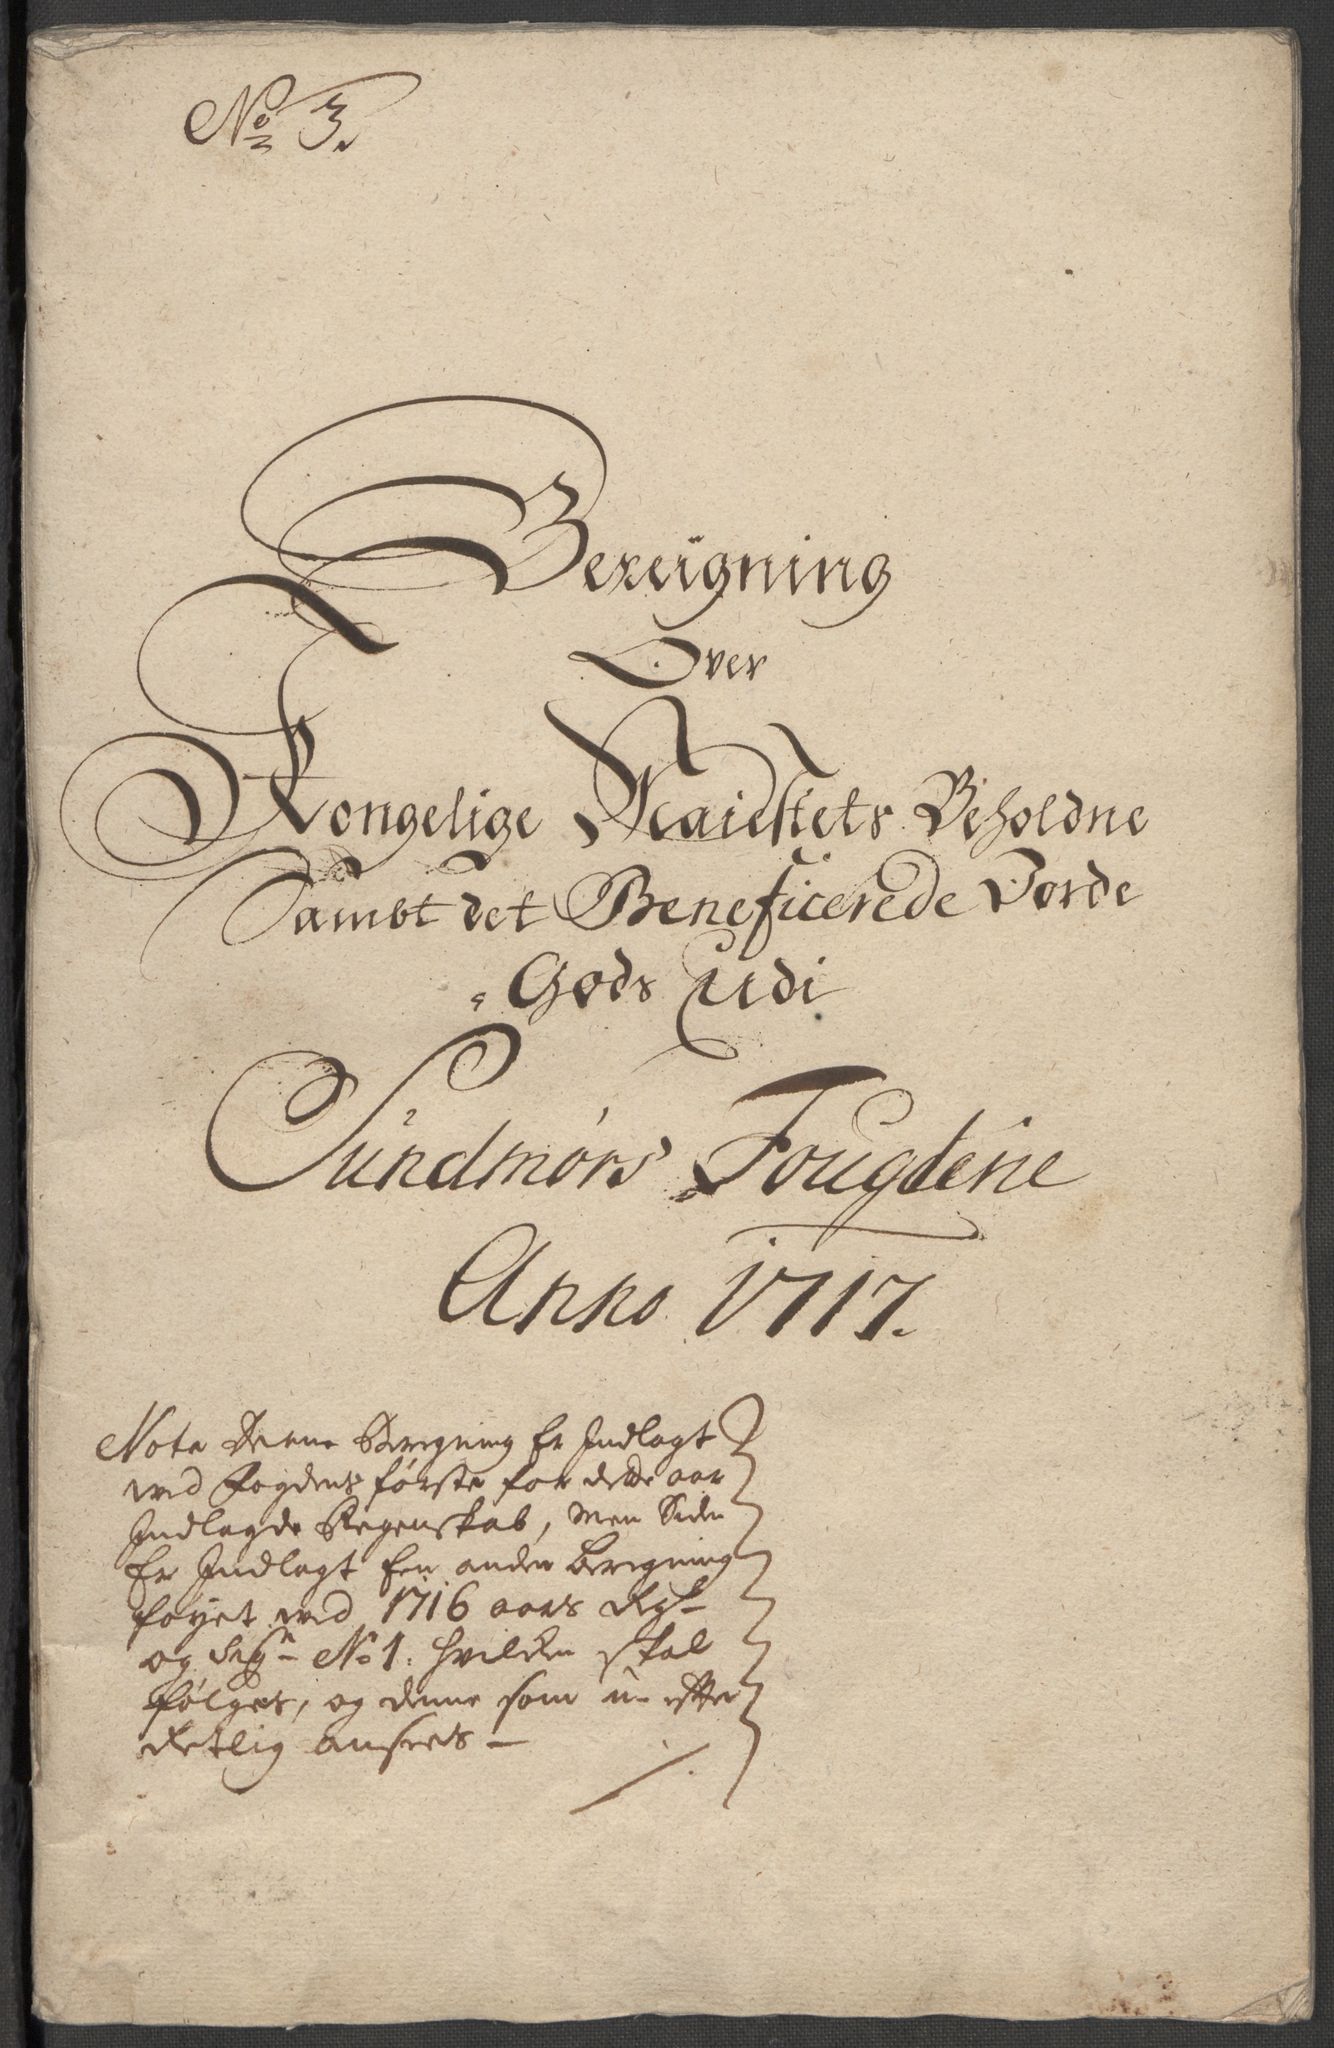 No 3.
Bereigning
Over
Kongelige Maiestets Beholdne
Sambt det Beneficerede Jorde
Gods Udi
Sundmørs Fougderie
Anno 1717.
Nota Denne Beregning Er Indlagt
ved Fogdens første for dette aar
Indlagde Regenskab, Men Siden
Er Indlagt Een anden beregning
føyet ved 1716 aars
og No 1. hvilken skal
følges, og denne som u-efter
retlig ansees